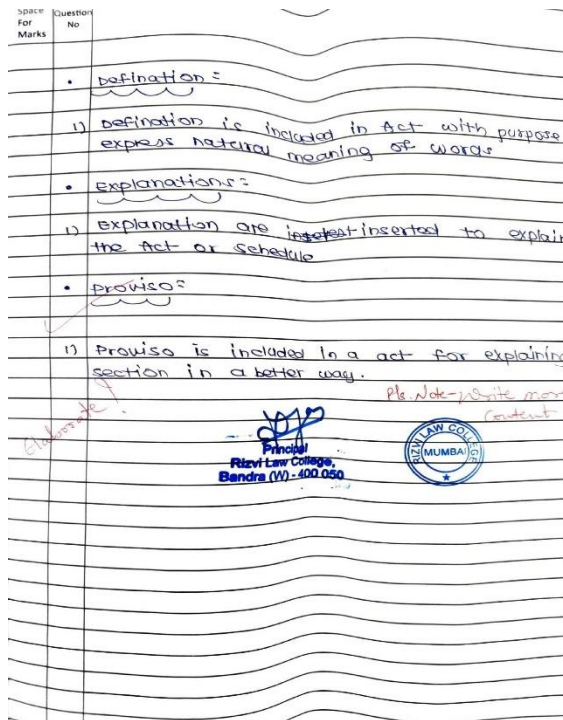 Space For Marks
Question No
• Defination :
1) Defination is included in Act with purpose
express natural meaning of words
• explanations :
1) Explanation are inserted to explain
the Act or Schedule
• proviso :
1) Proviso is included in a act for explaining
section in a better way.
Pls. Note - Write more
Content
Elaborate !
Principal
Rizvi Law College,
Bandra (W) - 400 050
RIZVI LAW COLLEGE
MUMBAI